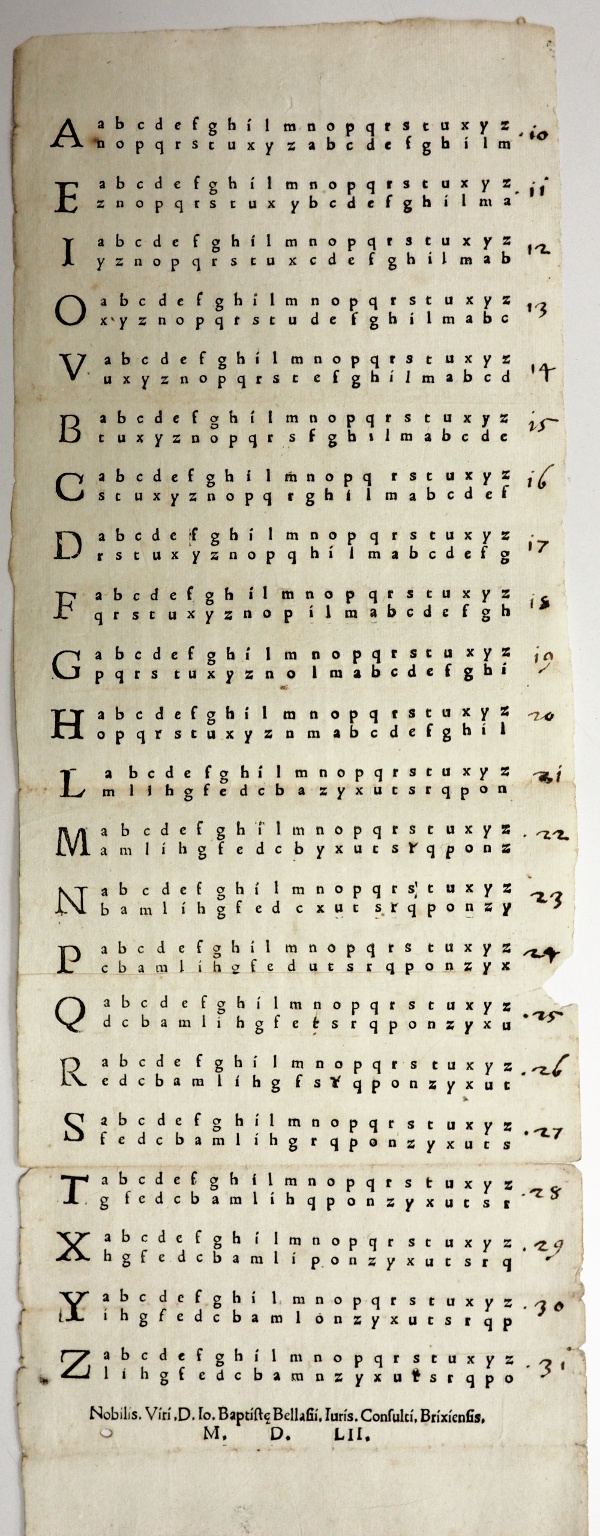 A a b c d e f g h i l m n o p q r s t u x y z .10
n o p q r s t u x y z a b c d e f g h i l m
E a b c d e f g h i l m n o p q r s t u x y z .11
z n o p q r s t u x y b c d e f g h i l m a
I a b c d e f g h i l m n o p q r s t u x y z 12
y z n o p q r s t u x c d e f g h i l m a b
O a b c d e f g h i l m n o p q r s t u x y z 13
x y z n o p q r s t u d e f g h i l m a b c
V a b c d e f g h i l m n o p q r s t u x y z 14
u x y z n o p q r s t e f g h i l m a b c d
B a b c d e f g h i l m n o p q r s t u x y z 15
t u x y z n o p q r s f g h i l m a b c d e
C a b c d e f g h i l m n o p q r s t u x y z 16
s t u x y z n o p q r g h i l m a b c d e f
D a b c d e f g h i l m n o p q r s t u x y z 17
r s t u x y z n o p q h i l m a b c d e f g
F a b c d e f g h i l m n o p q r s t u x y z 18
q r s t u x y z n o p i l m a b c d e f g h
G a b c d e f g h i l m n o p q r s t u x y z 19
p q r s t u x y z n o l m a b c d e f g h i
H a b c d e f g h i l m n o p q r s t u x y z 20
o p q r s t u x y z n m a b c d e f g h i l
L a b c d e f g h i l m n o p q r s t u x y z 21
m l i h g f e d c b a z y x u t s r q p o n
M a b c d e f g h i l m n o p q r s t u x y z .22
a m l i h g f e d c b y x u t s r q p o n z
N a b c d e f g h i l m n o p q r s t u x y z 23
b a m l i h g f e d c x u t s r q p o n z y
P a b c d e f g h i l m n o p q r s t u x y z 24
c b a m l i h g f e d u t s r q p o n z y x
Q a b c d e f g h i l m n o p q r s t u x y z .25
d c b a m l i h g f e t s r q p o n z y x u
R a b c d e f g h i l m n o p q r s t u x y z .26
e d c b a m l i h g f s r q p o n z y x u t
S a b c d e f g h i l m n o p q r s t u x y z .27
f e d c b a m l i h g r q p o n z y x u t s
T a b c d e f g h i l m n o p q r s t u x y z .28
g f e d c b a m l i h q p o n z y x u t s r
X a b c d e f g h i l m n o p q r s t u x y z .29
h g f e d c b a m l i p o n z y x u t s r q
Y a b c d e f g h i l m n o p q r s t u x y z .30
i h g f e d c b a m l o n z y x u t s r q p
Z a b c d e f g h i l m n o p q r s t u x y z .31
l i h g f e d c b a m n z y x u t s r q p o
Nobilis. Viri .D. Io. Baptiſtę Bellaſii, Iuris. Conſulti, Brixienſis.
M. D. LII.